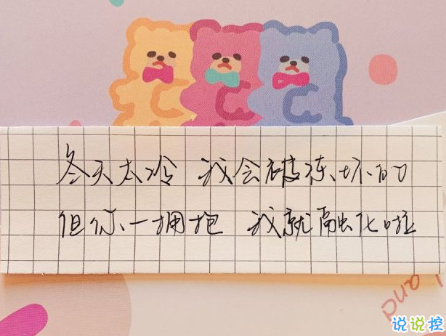 冬天太冷 我会被冻坏的
但你一拥抱 我就融化啦
puo
说说控